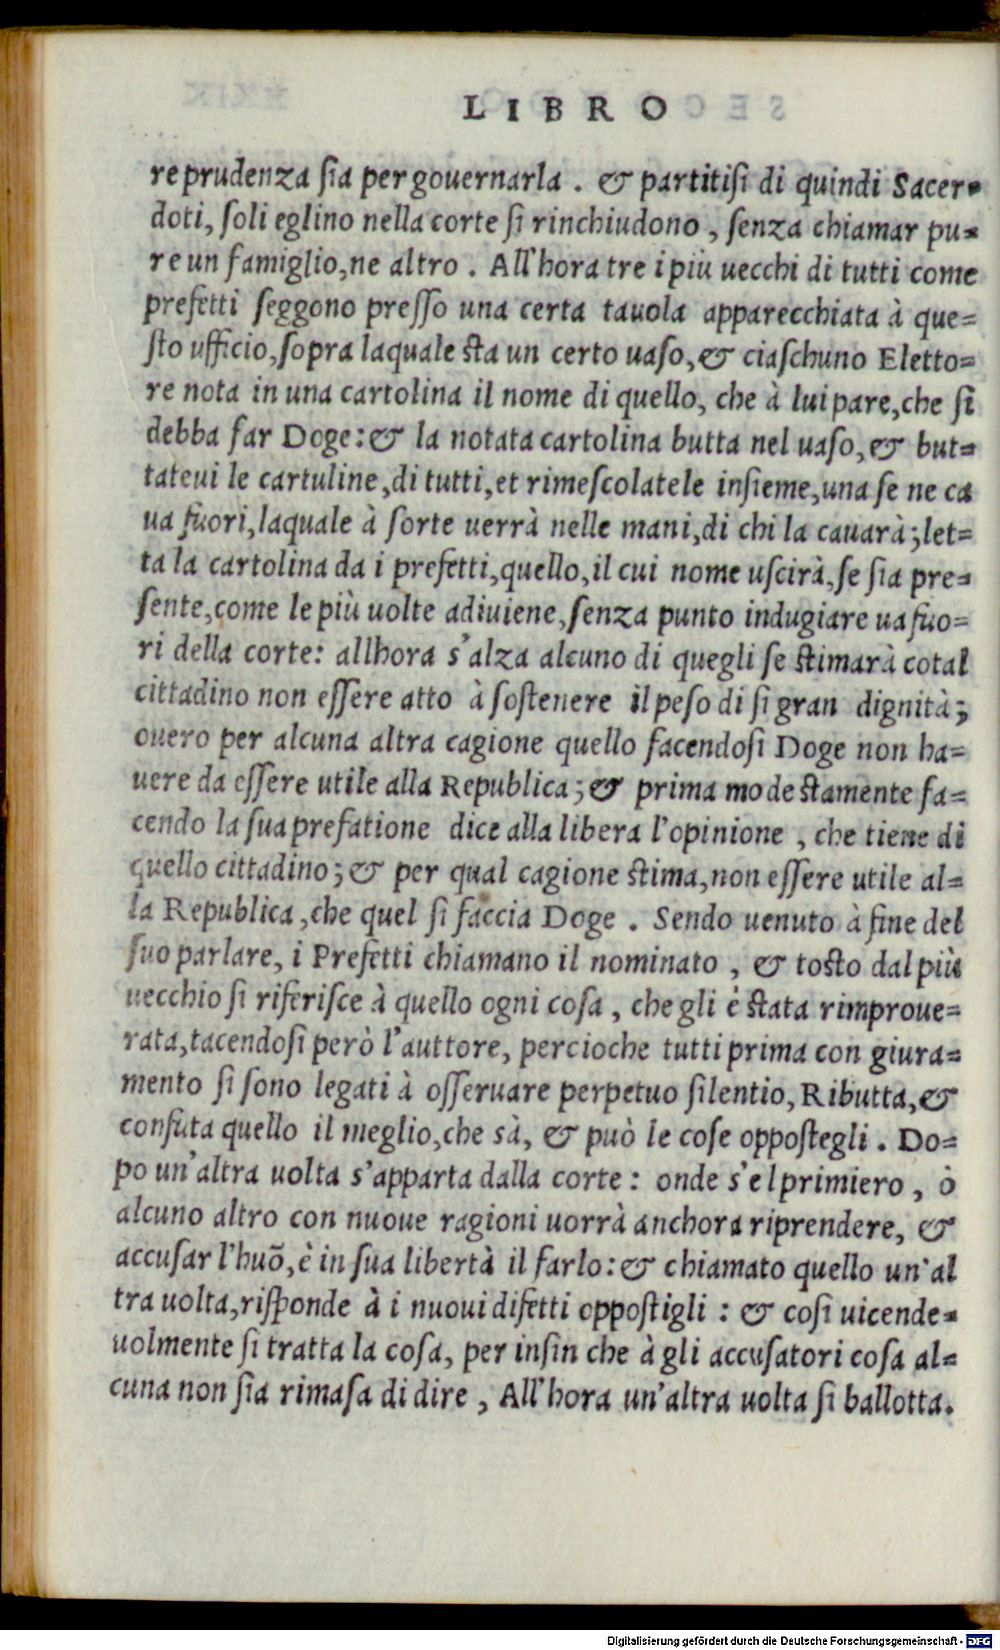 LIBRO
re prudenza ſia per gouernarla . & partitiſi di quindi Sacer=
doti, ſoli eglino nella corte ſi rinchiudono , ſenza chiamar pu=
re un famiglio,ne altro . All'hora tre i più uecchi di tutti come
prefetti ſeggono preſſo una certa tauola apparecchiata à que=
ſto ufficio,ſopra laquale ſta un certo uaſo,& ciaſchuno Eletto=
re nota in una cartolina il nome di quello, che à lui pare,che ſi
debba far Doge:& la notata cartolina butta nel uaſo,& but=
tateui le cartuline,di tutti,et rimeſcolatele inſieme,una ſe ne ca
ua fuori,laquale à ſorte uerrà nelle mani,di chi la cauarà;let=
ta la cartolina da i prefetti,quello,il cui nome uſcirà,ſe ſia pre=
ſente,come le più uolte adiuiene,ſenza punto indugiare ua fuo=
ri della corte: allhora s'alza alcuno di quegli ſe ſtimarà cotal
cittadino non eſſere atto à ſoſtenere il peſo di ſi gran dignità;
ouero per alcuna altra cagione quello facendoſi Doge non ha=
uere da eſſere utile alla Republica;& prima modeſtamente fa=
cendo la ſua prefatione dice alla libera l'opinione , che tiene di
quello cittadino;& per qual cagione ſtima,non eſſere utile al=
la Republica,che quel ſi faccia Doge . Sendo uenuto à fine del
ſuo parlare, i Prefetti chiamano il nominato , & toſto dal più
uecchio ſi riferiſce à quello ogni coſa , che gli è ſtata rimproue=
rata,tacendoſi però l'auttore, percioche tutti prima con giura=
mento ſi ſono legati à oſſeruare perpetuo ſilentio, Ributta,&
confuta quello il meglio,che sà, & può le coſe oppoſtegli . Do=
po un'altra uolta s'apparta dalla corte : onde s'el primiero , ò
alcuno altro con nuoue ragioni uorrà anchora riprendere, &
accuſar l'huõ,è in ſua libertà il farlo:& chiamato quello un'al
tra uolta,riſponde à i nuoui difetti oppoſtigli : & coſi uicende=
uolmente ſi tratta la coſa, per inſin che à gli accuſatori coſa al=
cuna non ſia rimaſa di dire , All'hora un'altra uolta ſi ballotta.
Digitalisierung gefördert durch die Deutsche Forschungsgemeinschaft - DFG